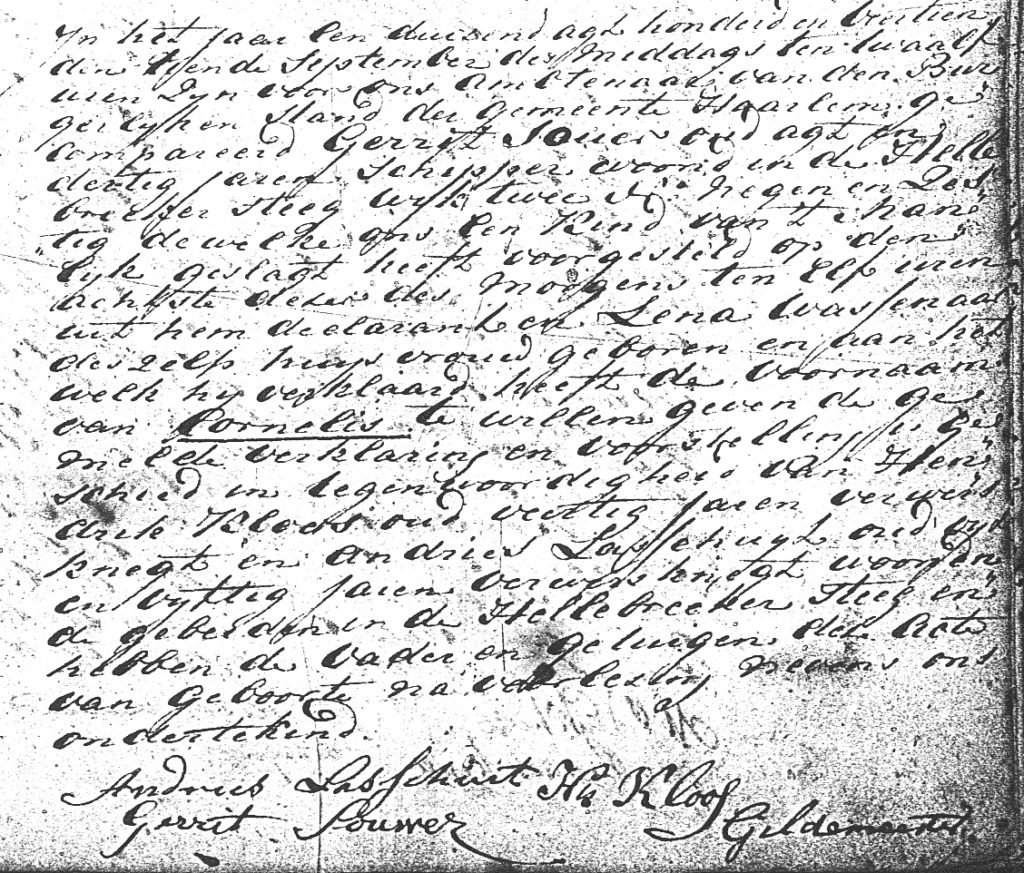 In het jaar Een duizend agt honderd en viertien
den tiende September des Middags ten twaalf
uren Zijn voor ons Amtenaar van den Bur
gerlyken Stand der Gemeente Haarlem ge
compareerd Gerrit Souer oud agt en
dertig jaren Schipper woond in de Helle
breeker Steeg wyk twee No negen en Zes
tig dewelke ons Een Kind van 't man
lyk geslagt heeft voorgesteld op den
achtste dezer des Morgens ten Elf uren
uit hem declarant en Lena Wassenaar
deszelfs huysvrouw geboren en aan het
welk hy verklaard heeft de voornaam
van Cornelis te willen geven de ge
melde verklaring en voorstelling is ge
schied in tegenwoordigheid van Hen
drik Kloos oud veertig jaren verwers
knegt en Andries Lasschuyt oud vyf
en vyftig jaren verwers knegt woonden
de gebeiden in de Hellebreeker Steeg en
hebben de vader en getuigen deze Acte
van geboorte na voorlezing nevens ons
ondertekend.
Andries Lasschuit Hk Kloos
Gerrit Souwer Gildemeester